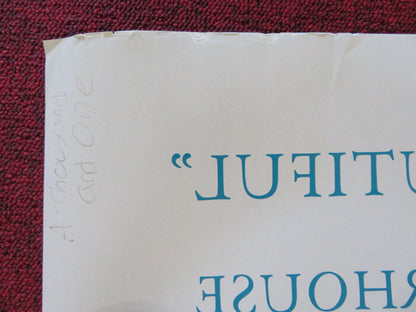 A Thousand
and one
UTIFUL"
RHOUSE